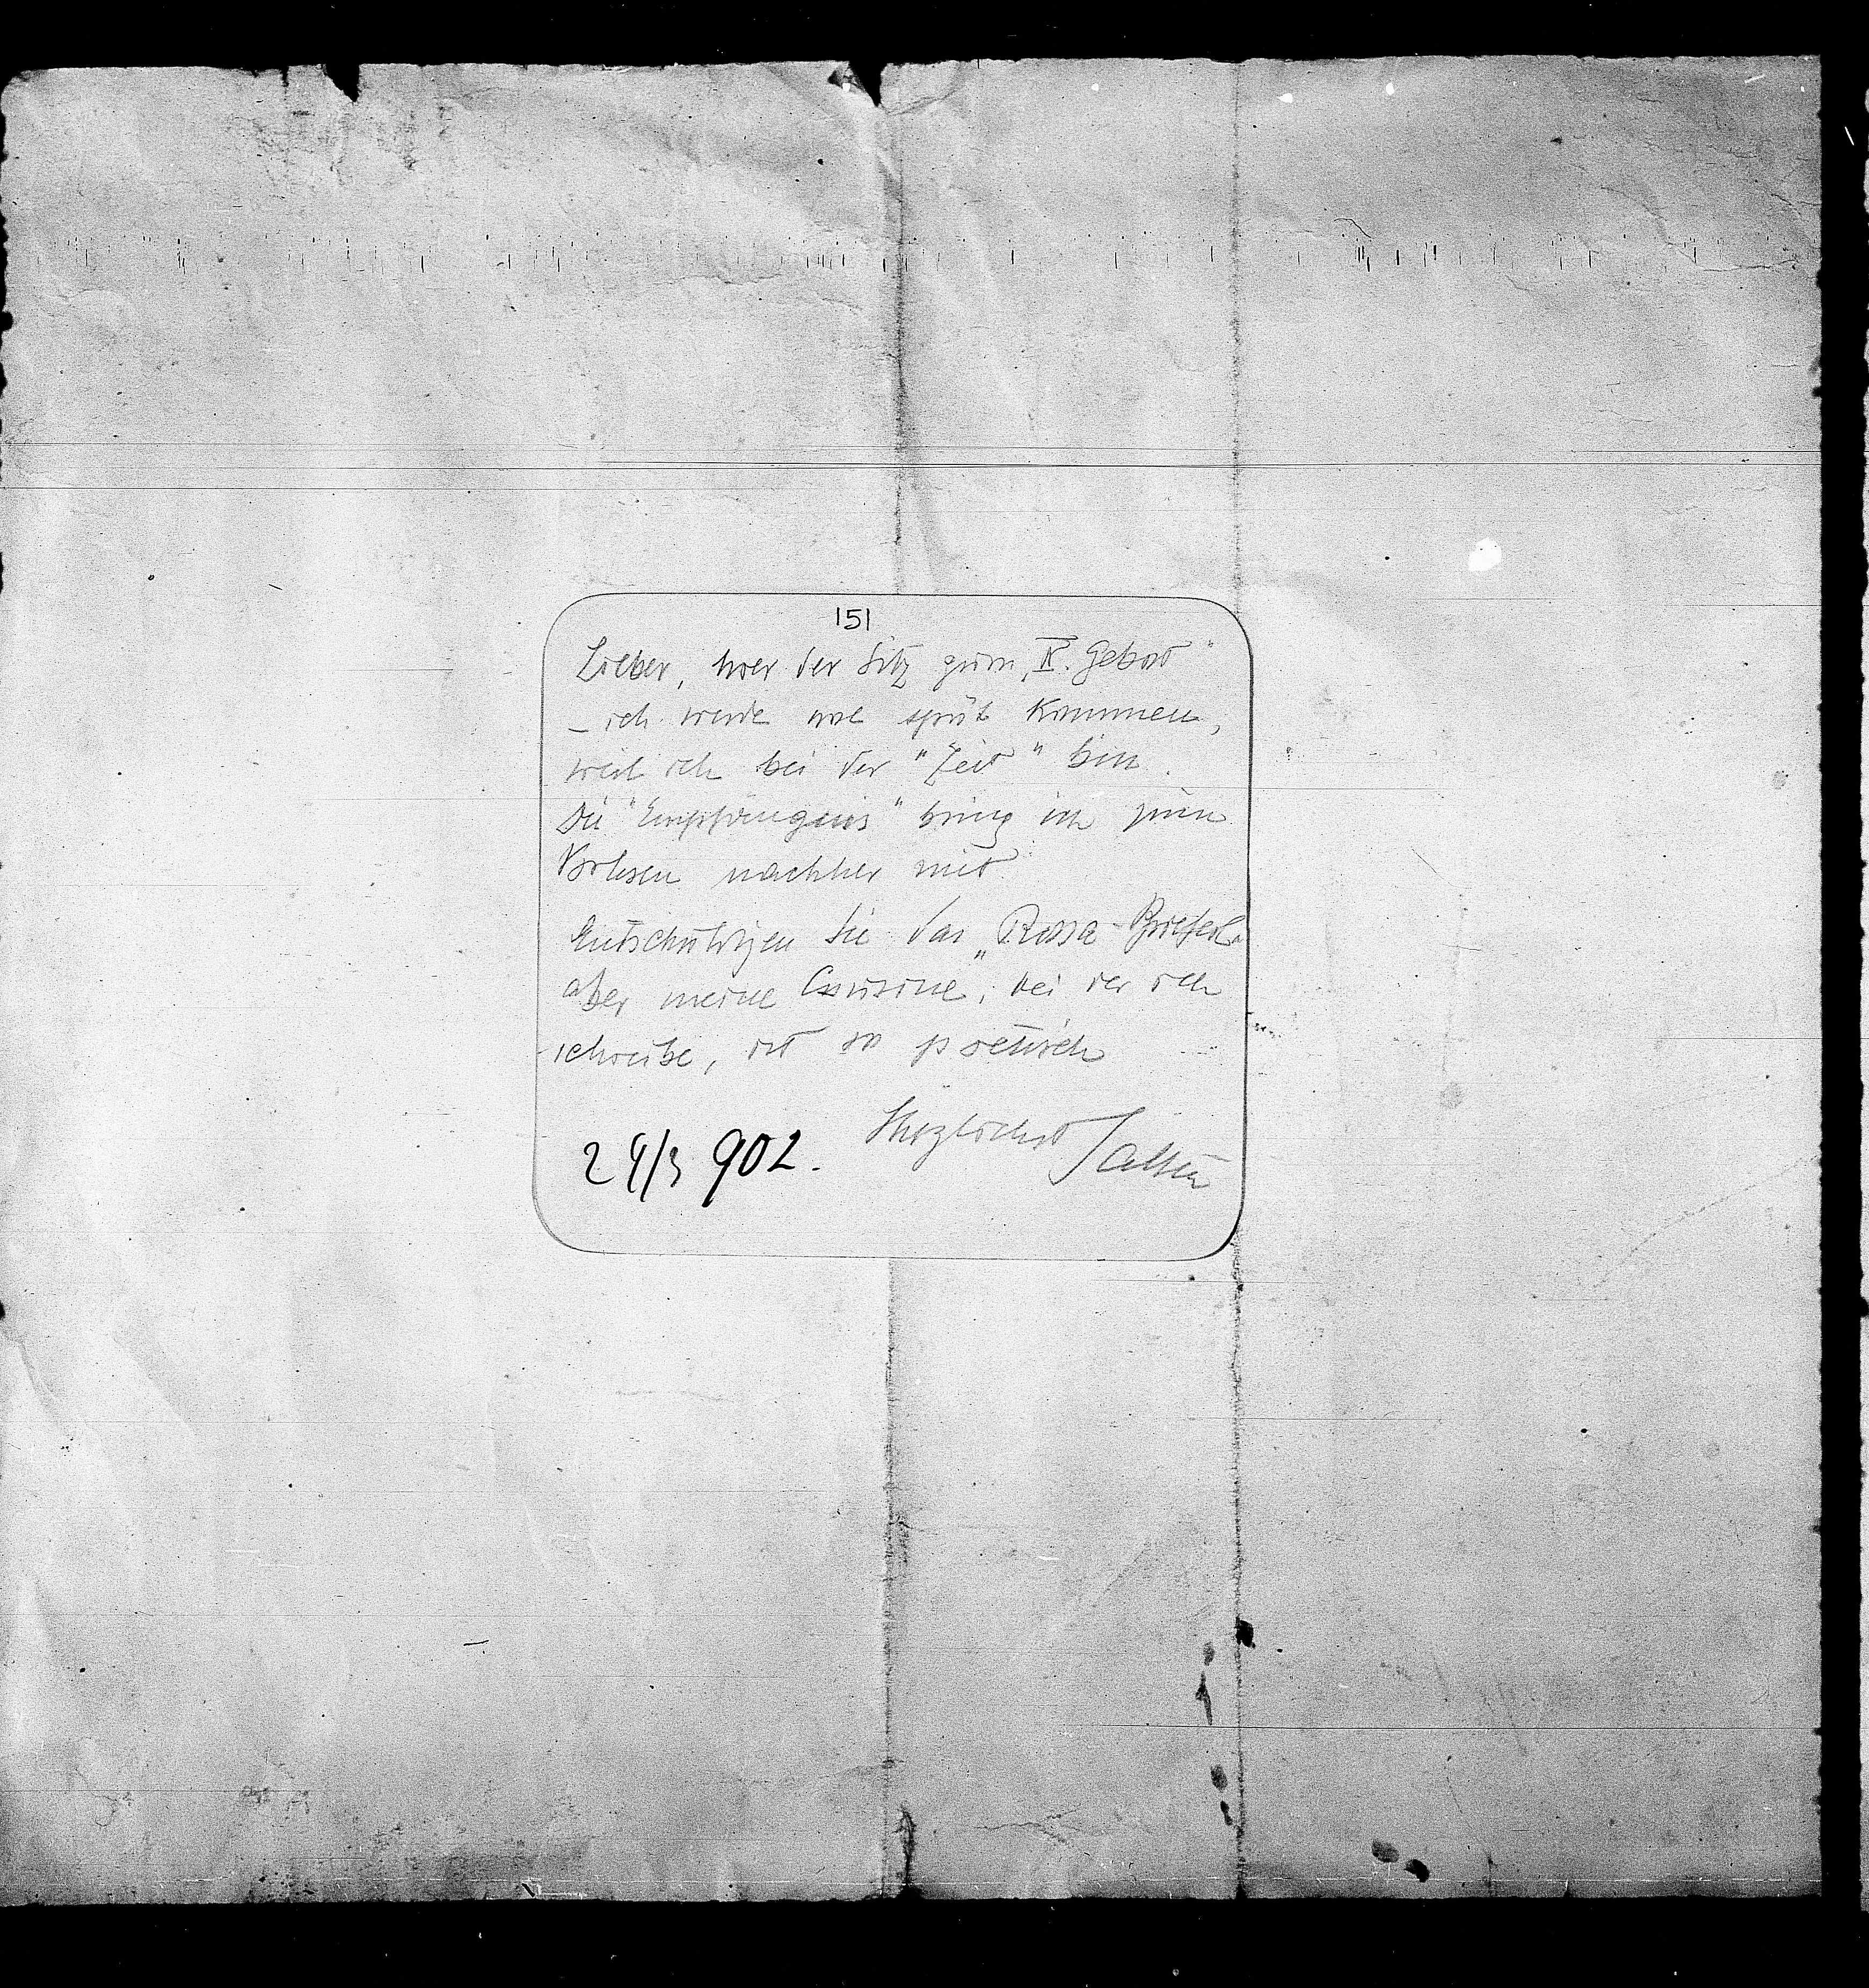 151
Lieber, hier der Sitz zum „IX. Gebot“
– ich werde wol spät kommen,
weil ich bei der "Zeit" bin.
Die "Empfängnis" bring ich zum
Vorlesen nachher mit
Entschuldigen Sie das „Rosa-Brieferl“
aber meine Cousine, bei der ich
schreibe, ist so poetisch
Herzlichst Salten
24/3 902.